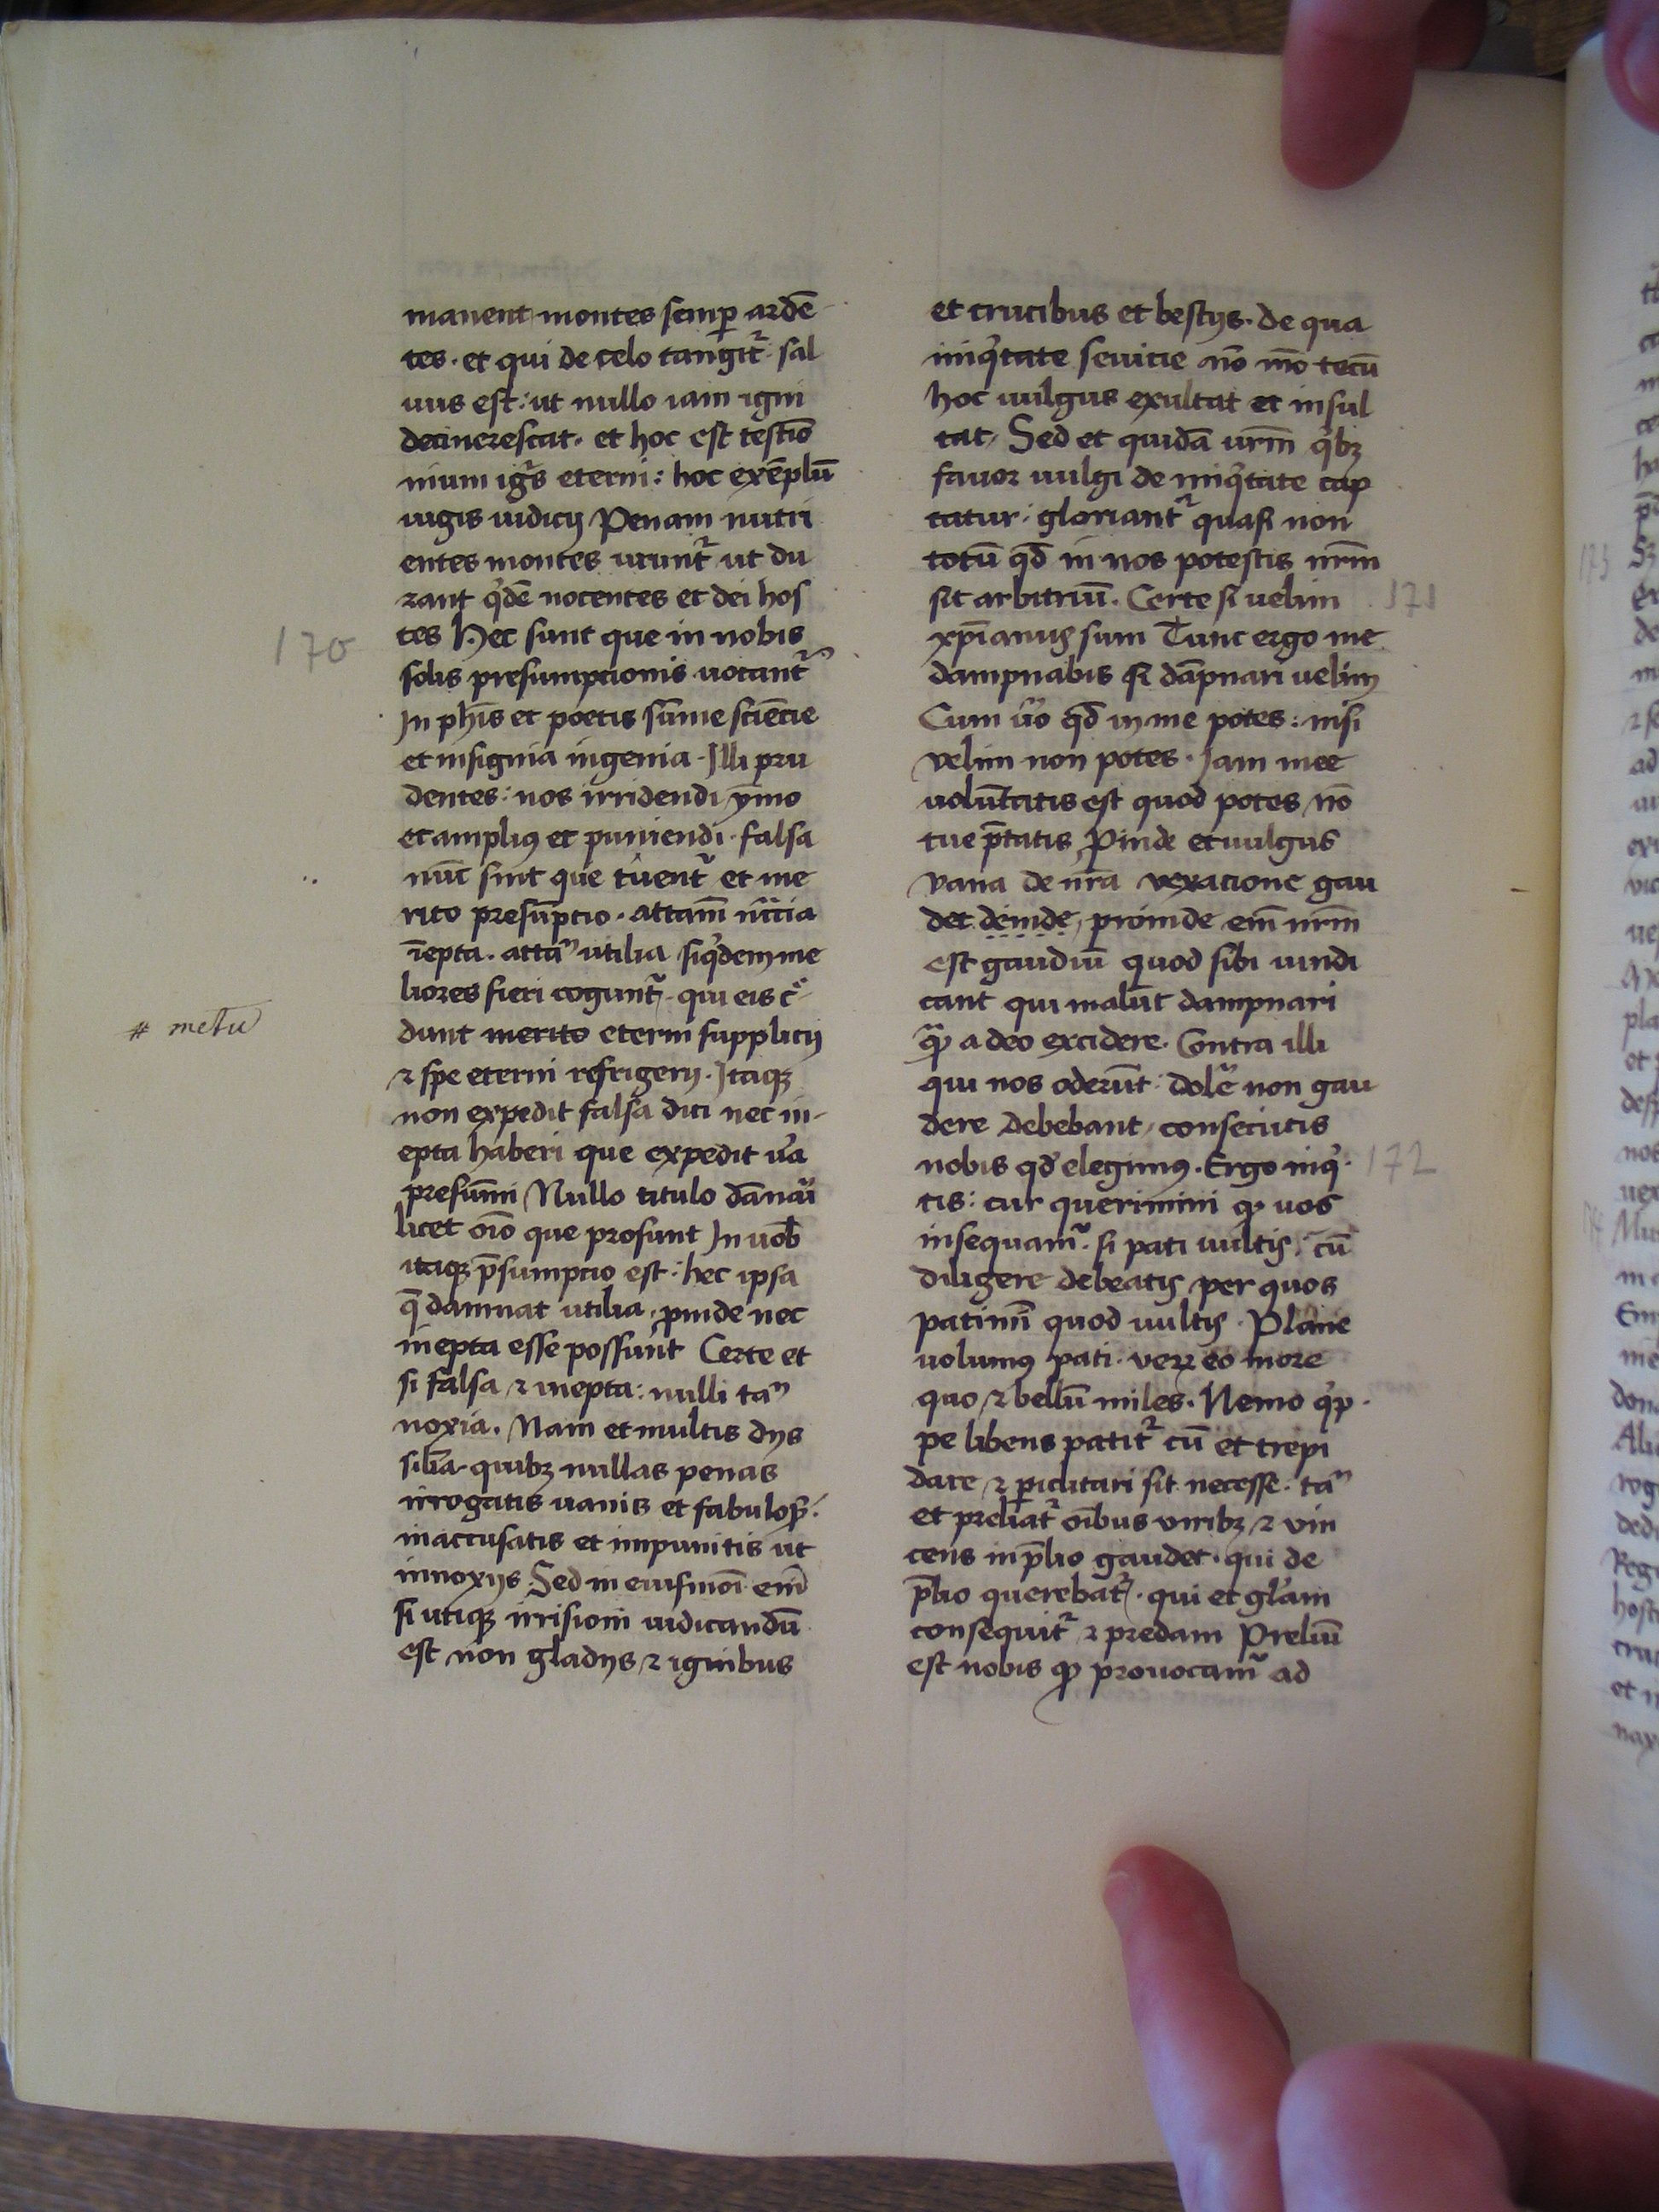 manent montes semp ardē
tes · et qui de celo tangit᷑ · sal
uus est : ut nullo iam igni
decinerescat · et hoc est testīo
nium igīs eterni : hoc exēplū
iugis iudicij Penam nutri
entes montes urunt᷑ ut du
rant qͥdē nocentes et dei hos
170
tes Hec sunt que in nobis
solis presumptionis uocant᷑
In phīs et poetis sūme sciētie
et insignia ingenia · Illi pru
dentes : nos irridendi ymo
et ampliꝯ et puniendi · falsa
nūc sint que tuent᷑ et me
rito presūptio · attam̄ nc̄cia
īepta · attaᷠ utilia siqͥdem me
liores fieri cogunt᷑ · qui eis cͤ
# metu
dunt merito eterni supplicij
⁊ spe eterni refrigerij · Itaqꝫ
non expedit falsa dici nec in
epta haberi que expedit uͦa
presūmi Nullo titulo dānaͥ
licet oīo que prosunt In uob̄
itaqꝫ p̄sumptio est : hec ipsa
q̄ damnat utilia · ꝓinde nec
inepta esse possunt Certe et
si falsa ⁊ inepta : nulli taᷠ
noxia · Nam et multis dijs
silīa quibꝫ nullas penas
irrogatis uanis et fabulos̄ ·
inaccusatis et impunitis ut
innoxijs Sed in eiusmōi em̄
si utiqꝫ irrisioni iudicandū
est non gladijs ⁊ ignibus
et crucibus et bestijs · de qua
iniqͥtate seuitie nō mō tecū
hoc uulgus exultat et insul
tat · Sed et quidā urm̄ qͥbꝫ
fauor uulgi de iniqͥtate cap
tatur · gloriant᷑ quasi non
totū qd̄ in nos potestis nrm̄
sit arbitriū · Certe si uelim
171
xp̄ianus sum Tunc ergo me
dampnabis si dāpnari uelim
Cum uͦo qd̄ in me potes : nisi
velim non potes · Iam mee
uolūtatis est quod potes nō
tue p̄tatis Pinde et uulgus
vana de nr̄a vexatione gau
det deinde, proinde em̄ nrm̄
est gaudiū quod sibi uindi
cant qui malūt dampnari
qͣꝫ a deo excidere · Contra illi
qui nos oderūt · doleͤ non gau
dere debebant, consecutis
nobis qd̄ elegimꝯ · Ergo inqͥ
172
tis : cur querimini ꝙ uos
insequam᷑ · si pati uultis · cū
diligere debeatis per quos
patimī quod uultis · Plane
uolumꝯ pati · veꝝ eo more
quo ⁊ bellū miles · Nemo qͥp
pe libens patit᷑ cū et trepi
dare ⁊ ꝑiclitari sit necesse · taᷠ
et preliat᷑ oībus viribꝫ ⁊ vin
cens in p̄lio gaudet · qui de
p̄lio querebat᷑ · qui et glām
consequit᷑ ⁊ predam Preliū
est nobis ꝙ prouocam᷑ ad